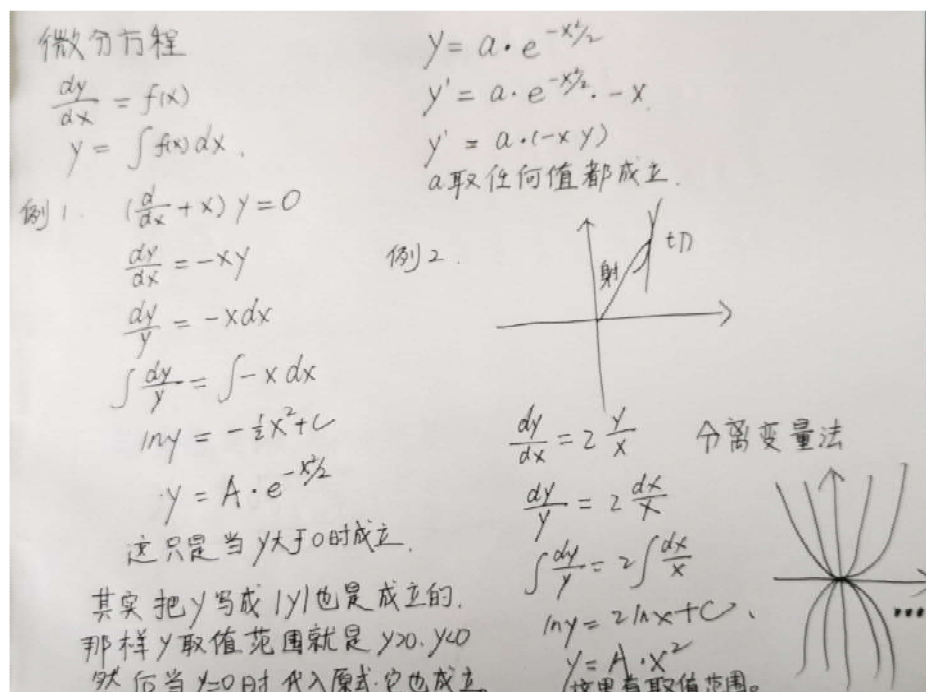 微分方程
dy/dx = f(x)
y = ∫f(x)dx.
例1. (d/dx + x) y = 0
dy/dx = -xy
dy/y = -xdx
∫dy/y = ∫-x dx
lny = -½x²+C
y = A·e^(-x²/2)
这只是当y大于0时成立.
其实把y写成|y|也是成立的.
那样y取值范围就是y>0.y<0
然后当y=0时代入原式.它也成立
y = a·e^(-x²/2)
y' = a·e^(-x²/2)·-x
y' = a·(-xy)
a取任何值都成立.
例2.
射
切
dy/dx = 2 y/x 分离变量法
dy/y = 2 dx/x
∫dy/y = 2∫dx/x
lny = 2lnx+C.
y = A·x²
这里有取值范围。